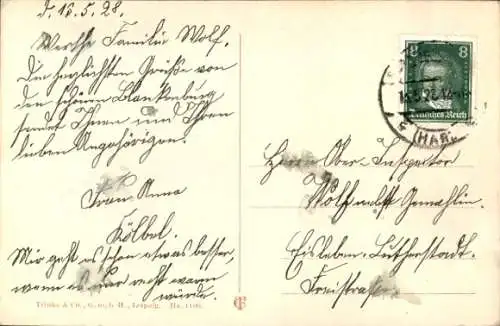 d. 16.5.28.
Werthe Familie Wolf.
Die herzlichsten Grüße von
dem schönen Blankenburg
sendet Ihnen und Ihren
lieben Angehörigen.
Frau Anna
Kölbel.
Mir geht es schon etwas besser,
wenn es nur recht warm
würde.
Trinks & Co., G. m. b. H., Leipzig.
8 8
Deutsches Reich
(HARZ)
Herrn Ober-Inspektor
Wolf nebst Gemahlin.
Eisleben-Lutherstadt.
Freistraße